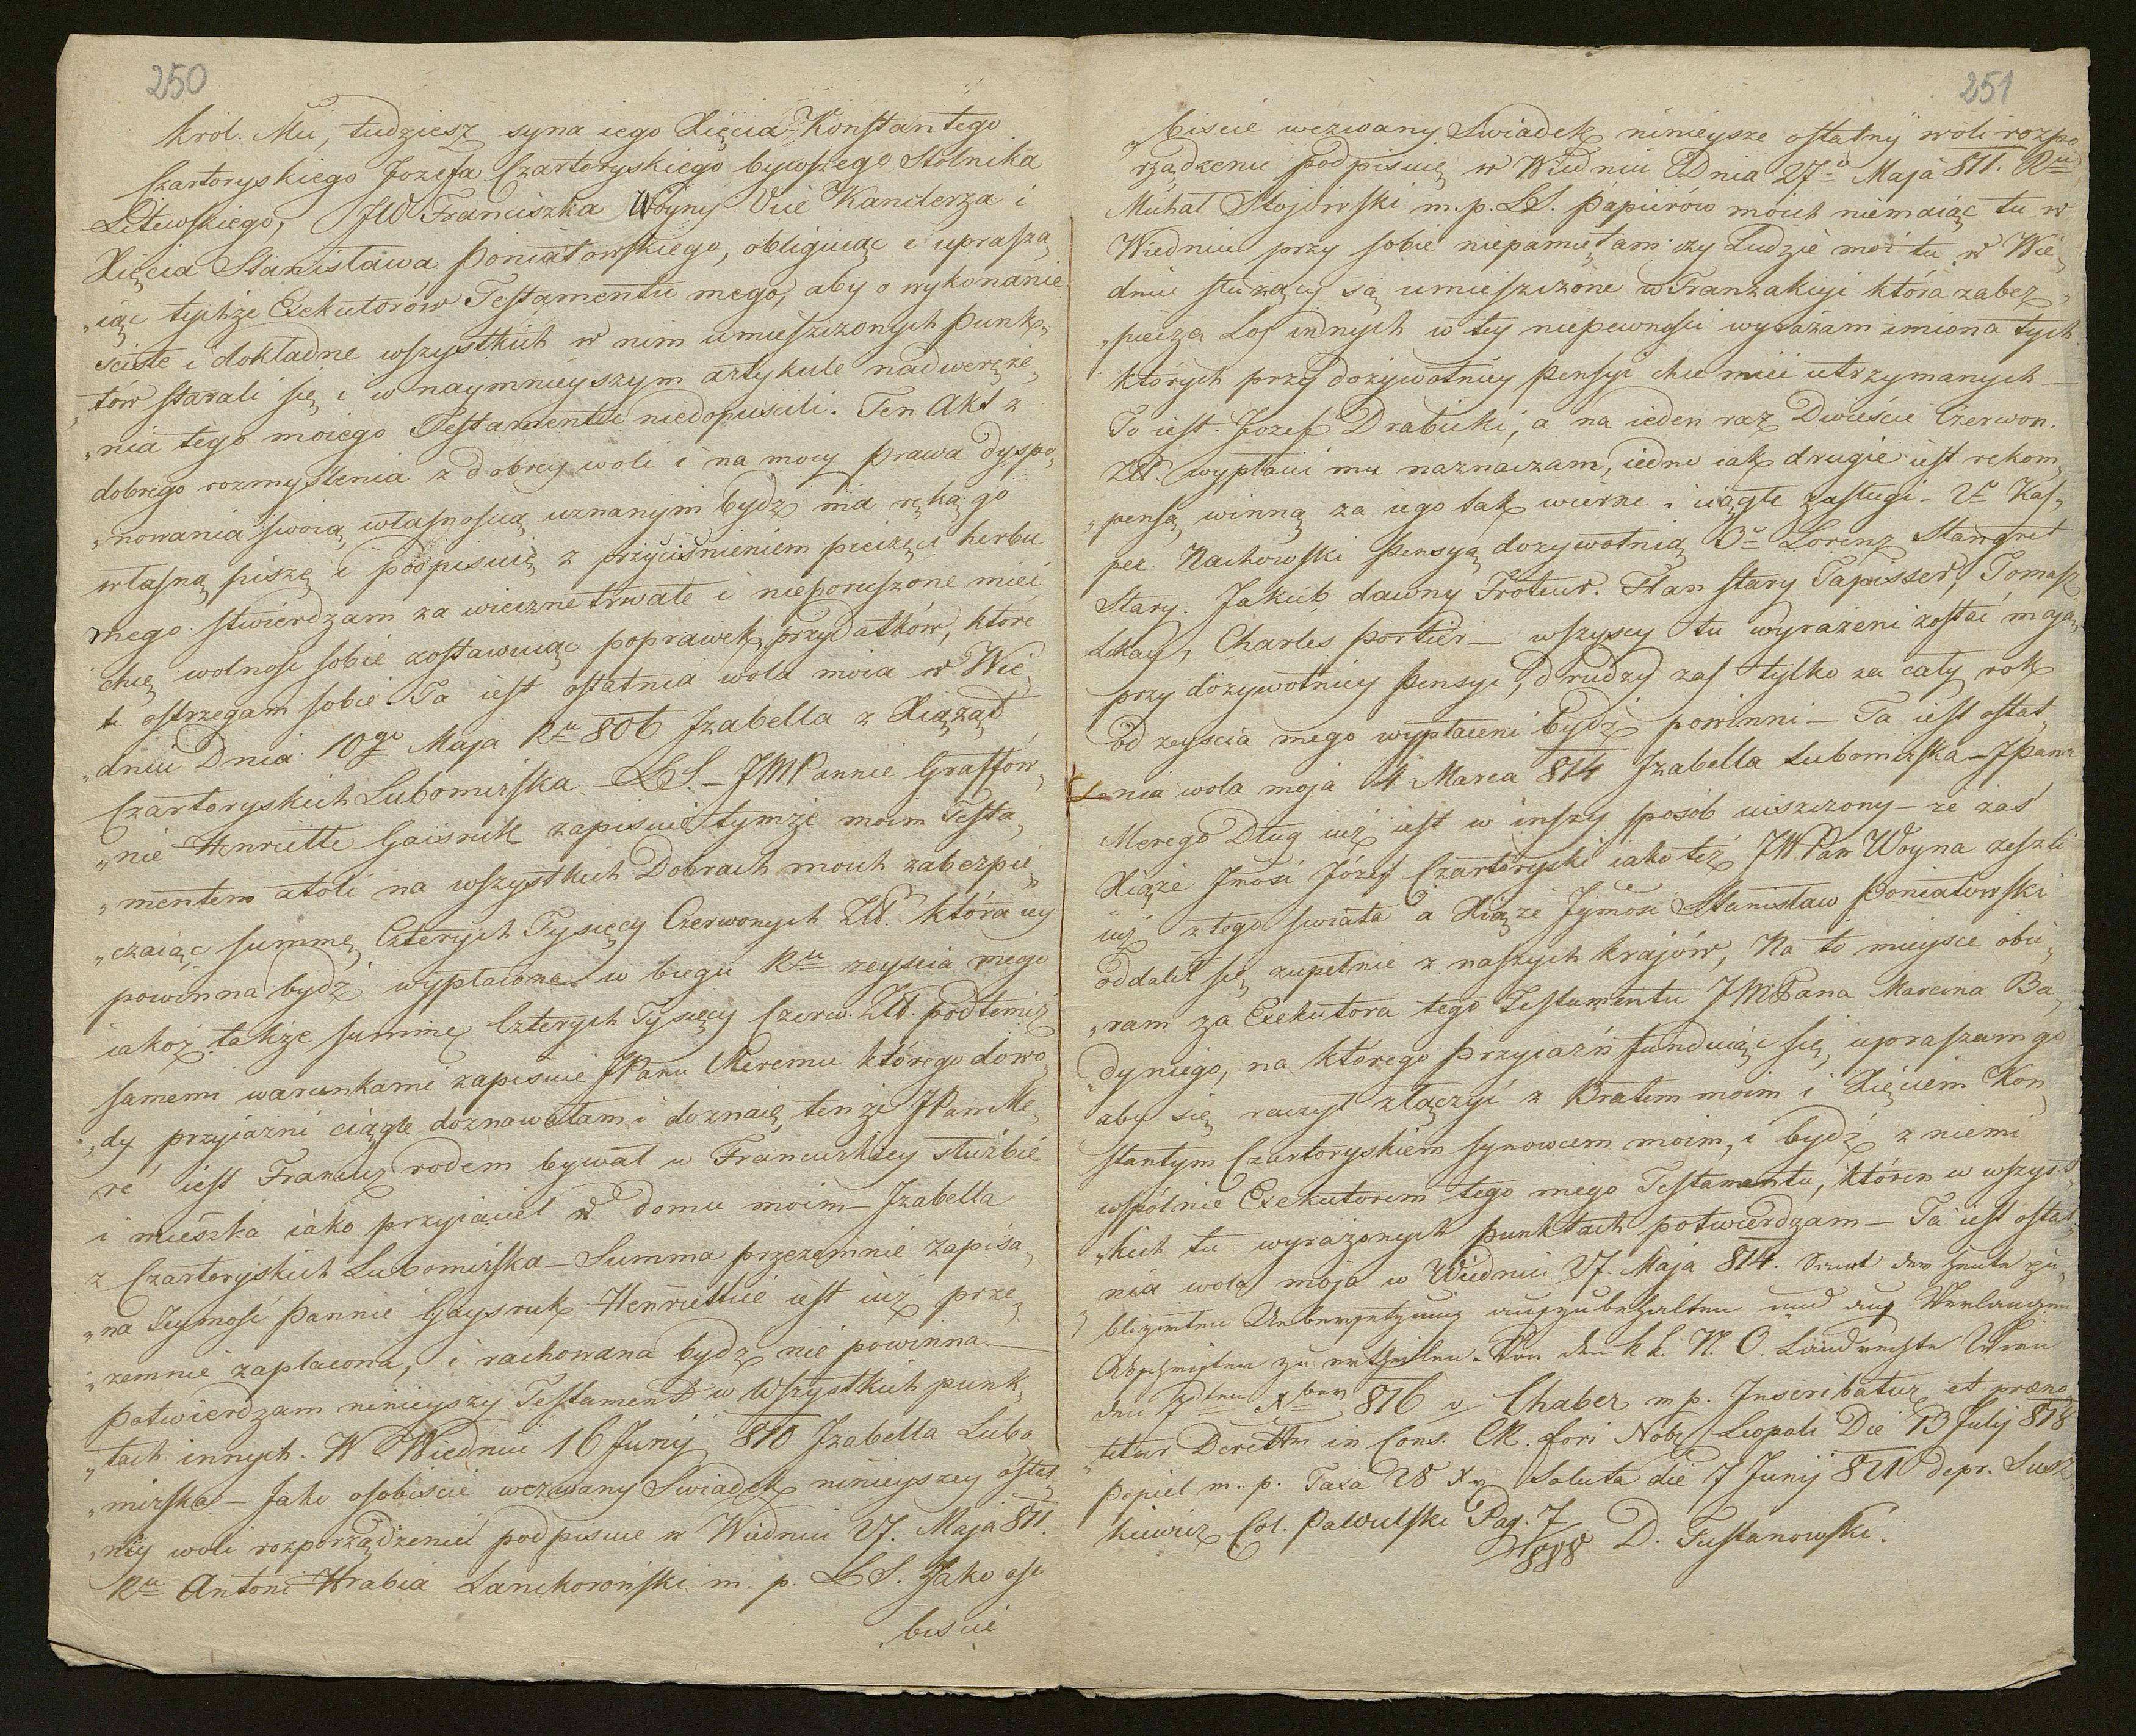 250
król. Mći, tudziesz syna iego Xięcia Konstantego
Czartoryskiego Jozefa Czartoryskiego bywszego Stolnika
Litewskiego, JW Franciszka Woyny Vice Kanclerza i
Xięcia Stanisława Poniatowskiego, obliguiąc i uprasza„
„iąc tychże Exekutorów Testamentu mego, aby o wykonanie
sciste i dokładne wszystkich w nim umieszczonych Punk„
„tów starali się i w naymnieyszym artykule nadweręże„
„nia tego moiego Testamentu niedopuscili. Ten Akt z
dobrego rozmyslenia z dobrey woli i na mocy Prawa dyspo„
„nowania swoią własnoscią uznanym bydz ma ręką go
własną piszę i podpisuię z przycisnieniem pieczęci herbu
mego stwierdzam za wieczne trwałe i nieporuszone mieć
chcę wolnosc sobie zostawuiąc poprawek, przydatków, które
to ostrzegam sobie. Ta iest ostatnia wola moia w Wie„
„dniu Dnia 10go Maja Ru 806 Izabella z Xiążąt
Czartoryskich Lubomirska LS. – JMPannie Graffow„
„nie Henriette Gaisruk zapisuie tymże moim Testa„
„mentem atoli na wszystkich Dobrach moich zabezpie„
„czaiąc summę Czterych Tysięcy Czerwonych Złł. która iey
powinna bydź wypłacona w biegu Ru zeyscia mego
iakoż także summę Czterych Tysięcy Czerw. Złł. pod temiż
samemi warunkami zapisuie JPanu Meremu którego dowo„
„dy przyiazni ciągle doznawałam i doznaię, tenże JPan Me„
ré iest Francuz rodem bywał w Francuzkiey służbie
i mieszka iako przyiaciel w domu moim – Izabella
z Czartoryskich Lubomirska – Summa przezemnie zapisa„
„na Jeymosć Pannie Gaysruk Henriettcie iest iuż prze„
„zemnie zapłacona, i rachowana bydz nie powinna –
Potwierdzam ninieyszy Testament w Wszystkich punk„
„tach innych. W Wiedniu 16 Junij 810 Izabella Lubo„
„mirska – Jako osobiscie wezwany Swiadek ninieyszey ostat„
„niy woli rozporządzenie podpisuie w Wiedniu 27. Maja 811.
Ru Antoni Hrabia Lanckoroński m. p. LS. Jako oso
biscie
251
„biscie wezwany Swiadek ninieysze ostatny woli rozpo„
rządzenie podpisuię w Wiedniu Dnia 27o Maja 811. Ru
Michał Stojowski m. p. LS. Papierów moich niemaiąc tu w
Wiedniu przy sobie niepamiętam czy Ludzie moi tu w Wie„
dniu służący są umieszczone w Tranzakcyi która zabez„
„piecza Los innych w tey niepewnosci wyrażam imiona tych
których przy dożywotniey Pensyi chce mieć utrzymanych –
To iest. Jozef Drabicki, a na ieden raz Dwieście Czerwon.
Złł. wypłacić mu naznaczam, iedno iak drugie iest rekom„
„pensą winną za iego tak wierne i ciągłe zasługi – 2o Kas„
per Nachowski Pensyą dożywotnią 3o Lorenz Stangret
Stary. Jakub dawny Froteur. Ftan stary Tapisser, Tomasz
Lokay, Charles Portier – wszyscy tu wyrażeni zostać mają
przy dożywotniey Pensyi, drudzy zas tylko za cały rok
od zeyscia mego wypłaceni bydź powinni – Ta iest ostat„
„nia wola moja 4 Marca 814 Izabella Lubomirska – JPana
Merego Dług iuż iest w inszy sposób uiszczony – że zaś
Xiąże Jmosć Józef Czartoryski iako też JWPan Woyna zeszli
iuż z tego swiata a Xiąże Jymosć Stanisław Poniatowski
oddalił się zupełnie z naszych krajów, Na to mieysce obie„
„ram za Exekutora tego Testamentu JMPana Marcina Ba„
„dyniego, na którego przyjaźń funduiąc się, upraszam go
aby się raczył złączyć z Bratem moim i Xięciem Kon„
stantym Czartoryskiem synowcem moim, i bydź z niemi
wspólnie Exekutorem tego mego Testamentu, któren w wszyst„
„kich tu wyrażonych punktach potwierdzam – Ta iest ostat„
nia wola moja w Wiedniu 27. Maja 814. der heute pu„
blizirten Uebersetzung aufzubehalten und auf Verlangen
Abschriften zu ertheilen. Von den k k. N. O. Landrechte Wien
den 7ten Xber 816 Chaber m p. Inscribatur et præno„
„tetur Dcrettm in Cons. CR. fori Nobz Leopoli Die 13 Julij 818
Popiel m. p. Taxa 28 Xr Soluta die 7 Junij 821 depr. Susz
kiewicz Col. Pawulski Pag. 7
888 D. Tustanowski.